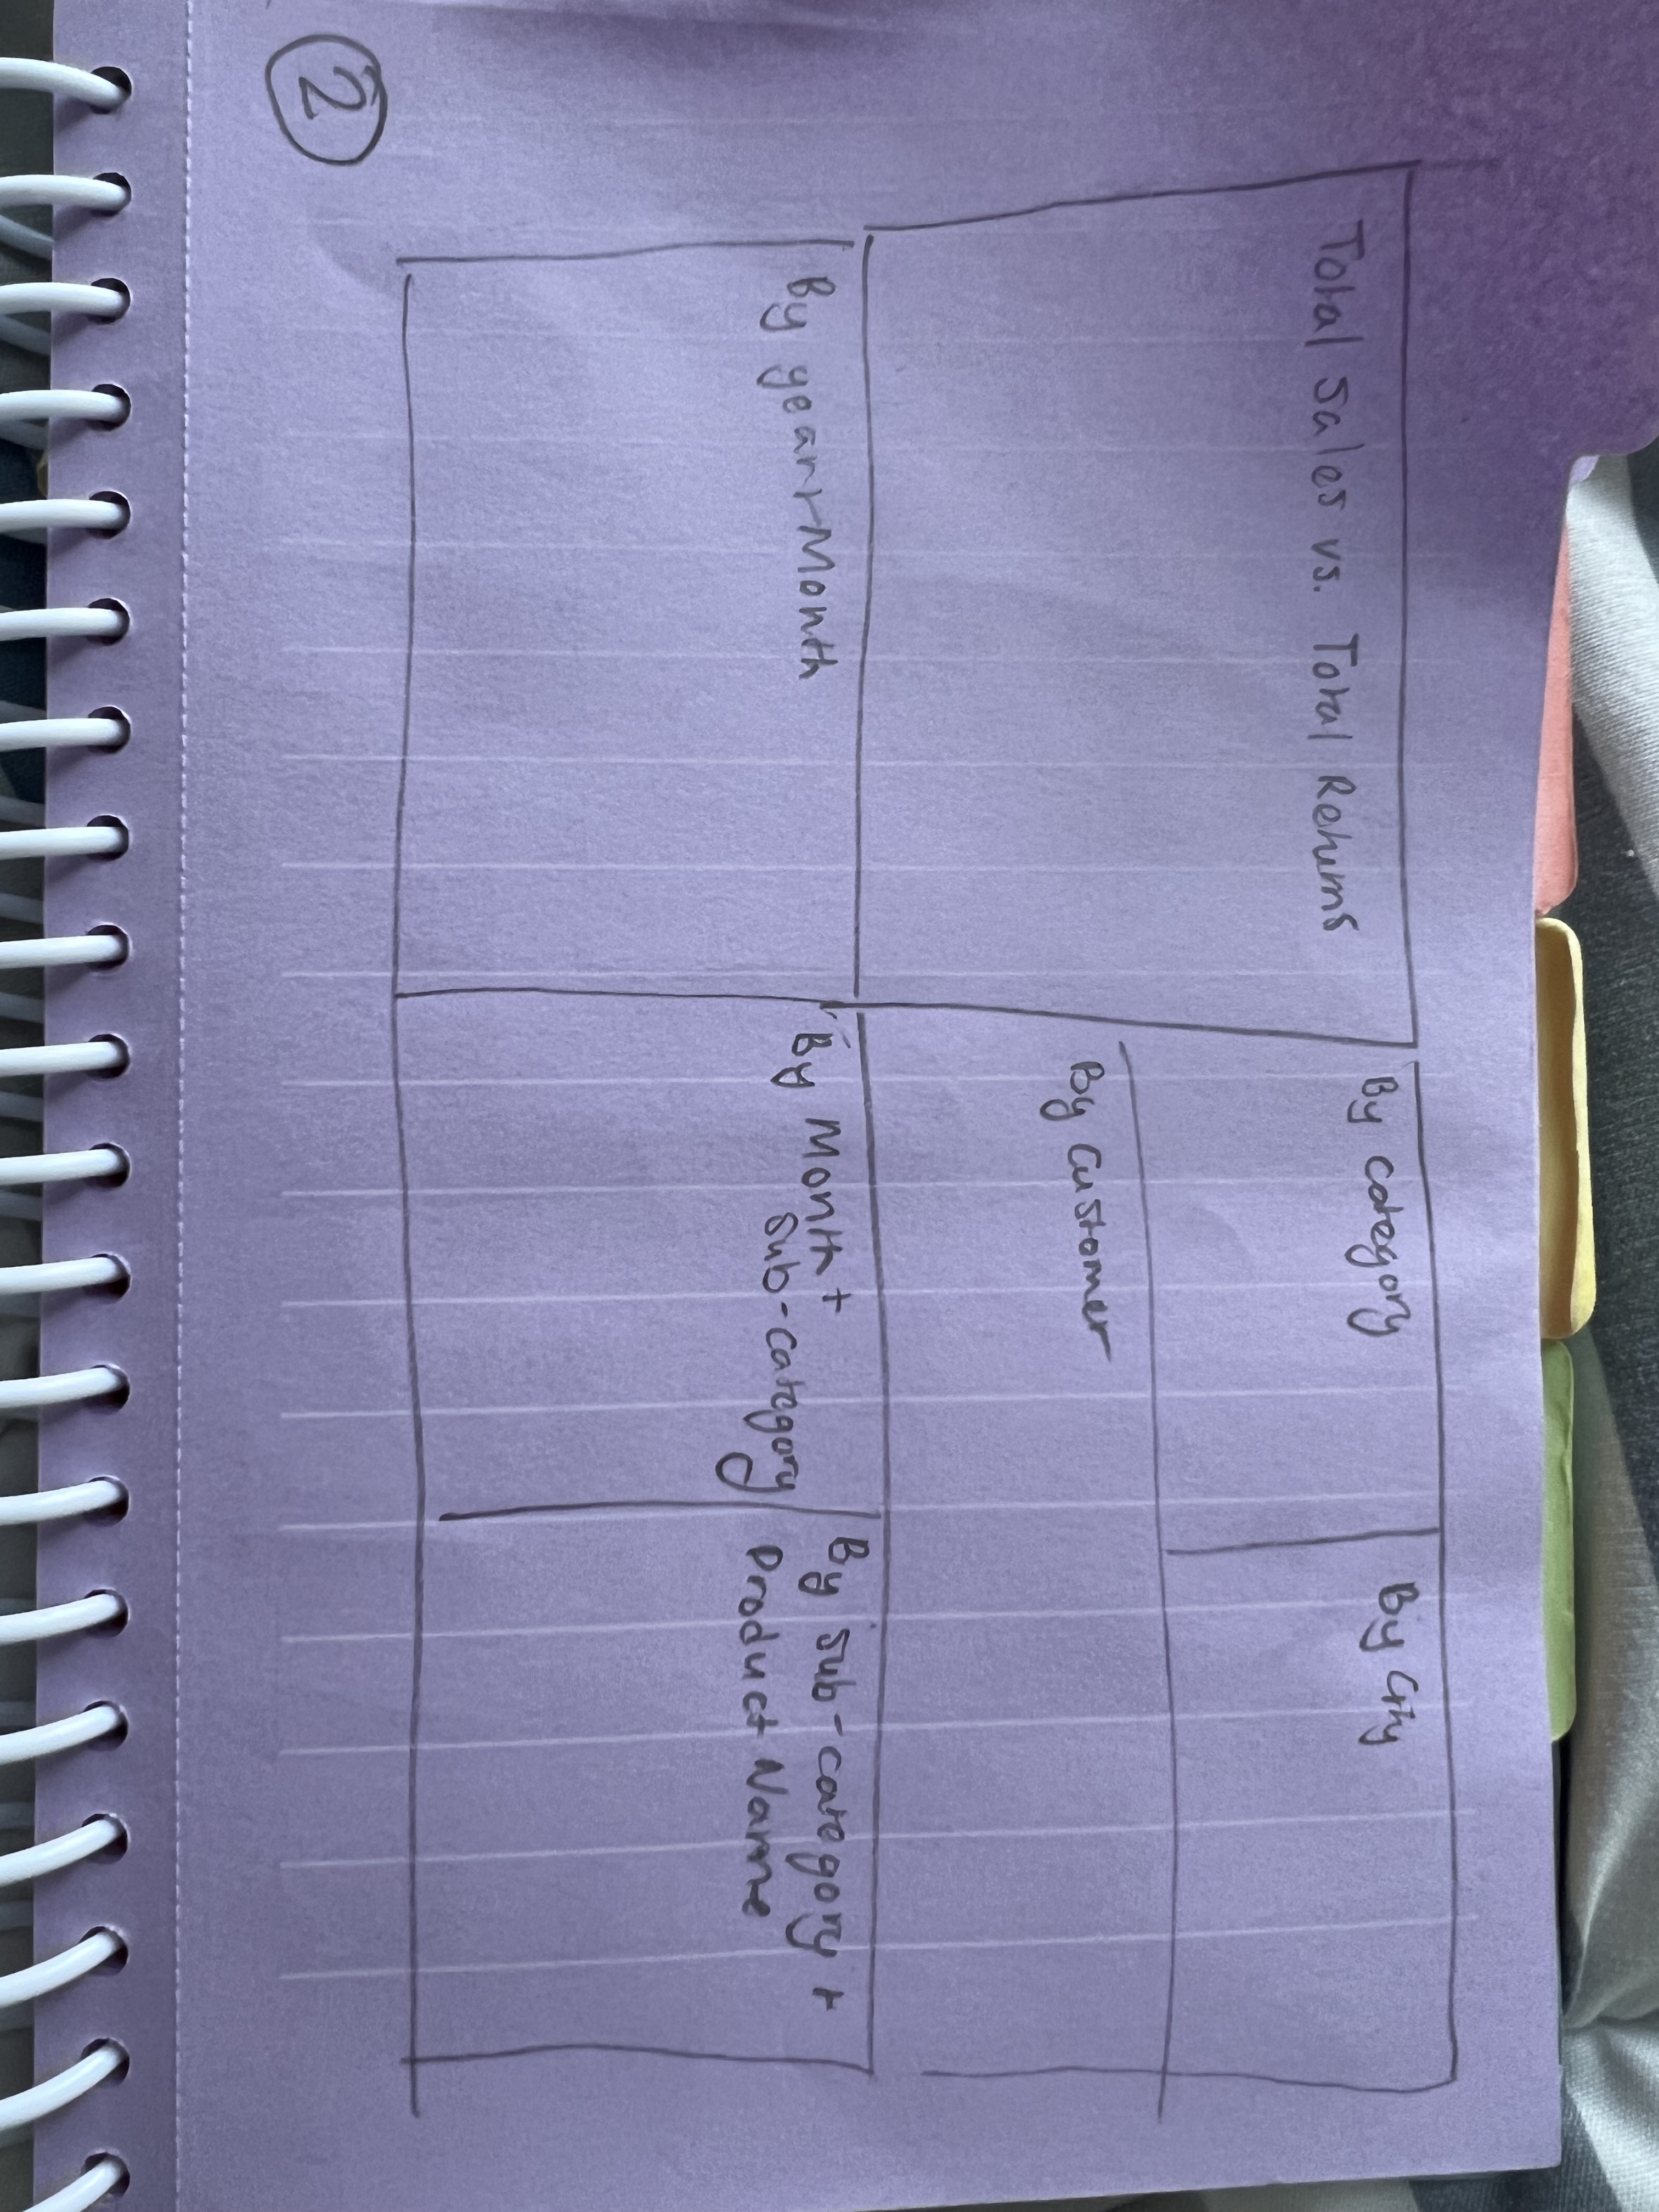 2
Total Sales vs. Total Returns
By Category
By City
By Customer
By year+Month
By Month +
Sub-Category
By Sub-Category +
Product Name